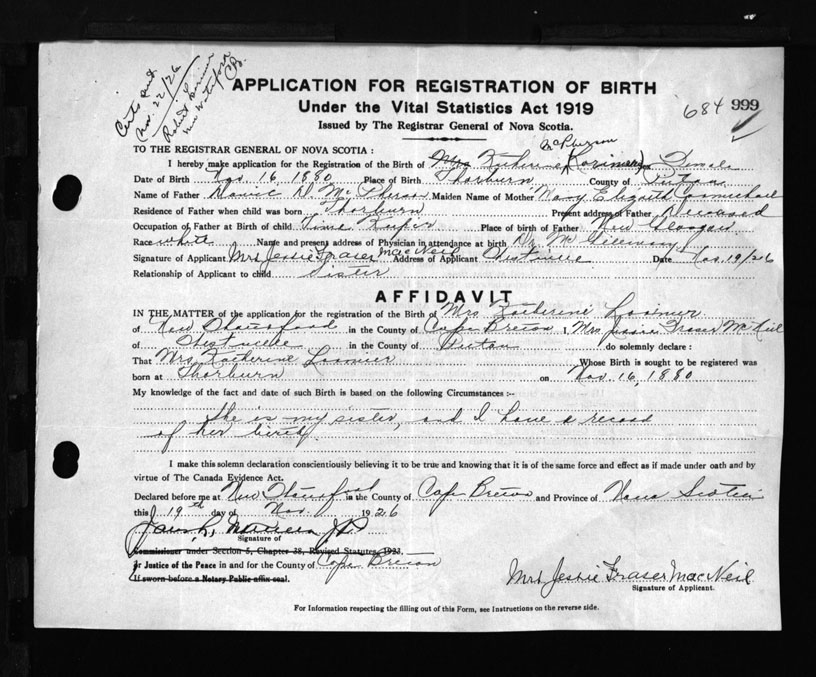 Nov. 22/26
Robert
C.B.
APPLICATION FOR REGISTRATION OF BIRTH
Under the Vital Statistics Act 1919
684 999
Issued by The Registrar General of Nova Scotia.
TO THE REGISTRAR GENERAL OF NOVA SCOTIA :
McPherson
I hereby make application for the Registration of the Birth of Mrs Katherine (Lorimer) Female
Date of Birth Nov. 16, 1880 Place of Birth Thorburn County of Pictou
Name of Father Daniel D. McPherson Maiden Name of Mother Mary Elizabeth Carmichael
Residence of Father when child was born Thorburn Present address of Father Deceased
Occupation of Father at Birth of child Time Keeper Place of birth of Father New Glasgow
Race White Name and present address of Physician in attendance at birth Dr. Mc
Signature of Applicant Mrs Jessie Fraser MacNeil Address of Applicant Date Nov. 19/26
Relationship of Applicant to child Sister
AFFIDAVIT
IN THE MATTER of the application for the registration of the Birth of Mrs Katherine Lorimer
of New Waterford in the County of Cape Breton I, Mrs Jessie Fraser McNeil
of in the County of Pictou do solemnly declare :
That Mrs Katherine Lorimer Whose Birth is sought to be registered was
born at Thorburn on Nov. 16, 1880
My knowledge of the fact and date of such Birth is based on the following Circumstances :-
She is my sister, and I have a record
of her birth.
I make this solemn declaration conscientiously believing it to be true and knowing that it is of the same force and effect as if made under oath and by
virtue of The Canada Evidence Act.
Declared before me at New Waterford in the County of Cape Breton and Province of Nova Scotia
this 19th day of Nov. 1926
J.P.
Signature of
Commissioner under Section 5, Chapter 38, Revised Statutes, 1923,
or Justice of the Peace in and for the County of Cape Breton
If sworn before a Notary Public affix seal.
Mrs Jessie Fraser MacNeil
Signature of Applicant.
For Information respecting the filling out of this Form, see Instructions on the reverse side.